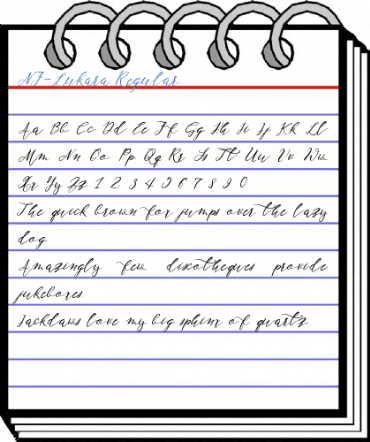 NF-Lukara Regular
Aa Bb Cc Dd Ee Ff Gg Hh Ii Jj Kk Ll
Mm Nn Oo Pp Qq Rr Ss Tt Uu Vv Ww
Xx Yy Zz 1 2 3 4 5 6 7 8 9 0
The quick brown fox jumps over the lazy
dog
Amazingly few discotheques provide
jukeboxes
Jackdaws love my big sphinx of quartz